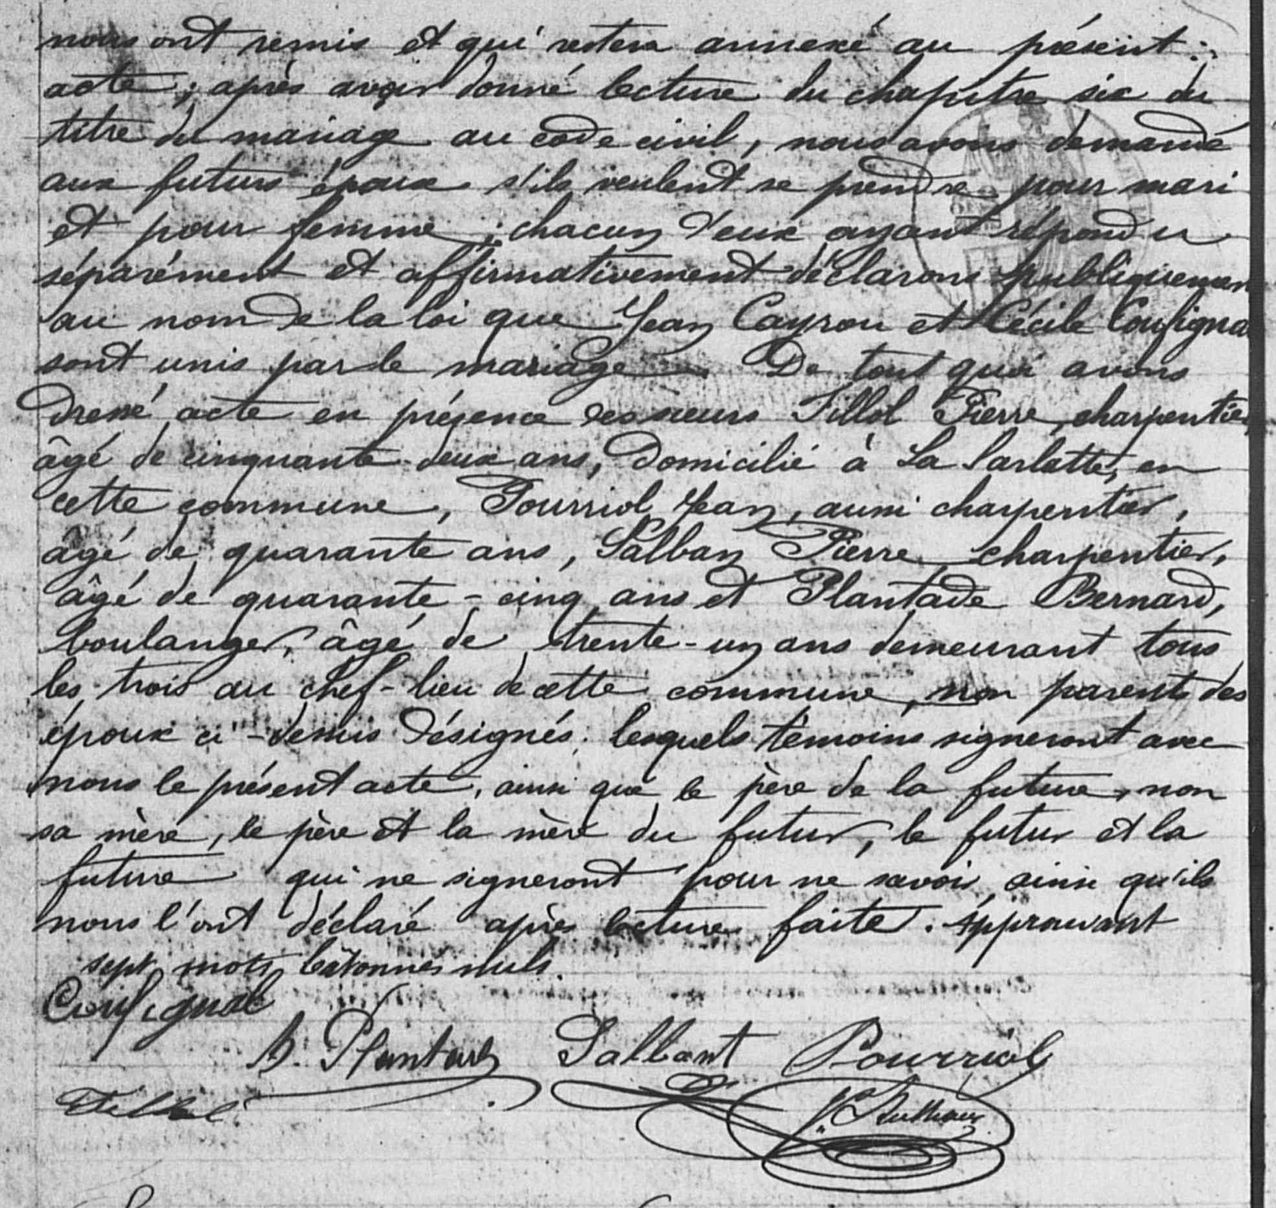 nous ont remis et qui restera annexé au présent
acte ; après avoir donné lecture du chapitre six du
titre du mariage au code civil, nous avons demandé
aux futurs époux s'ils veulent se prendre pour mari
et pour femme ; chacun d'eux ayant répondu
séparément et affirmativement déclarons publiquement
au nom de la loi que Jean Cayrou et Cécile Coufignal
sont unis par le mariage. De tout quoi avons
dressé acte en présence des sieurs Fillol Pierre, charpentier,
âgé de cinquante-deux ans, domicilié à La Sarlatte, en
cette commune, Pourriol Jean, aussi charpentier,
âgé de quarante ans, Salban Pierre charpentier,
âgé de quarante-cinq ans et Plantade Bernard,
boulanger, âgé de trente-un ans demeurant tous
les trois au chef-lieu de cette commune, non parents des
époux ci-dessus désignés. lesquels témoins signeront avec
nous le présent acte, ainsi que le père de la future, non
sa mère, le père et la mère du futur, le futur et la
future qui ne signeront pour ne savoir ainsi qu'ils
nous l'ont déclaré après lecture faite. Approuvant
sept mots bâtonnés nuls.
Coufignal
B. Plantade Salbant Pourriol
Fillol